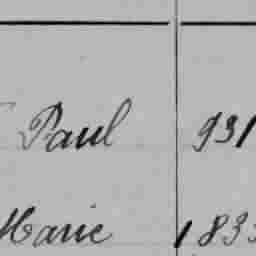 Paul 931
Marie 1833